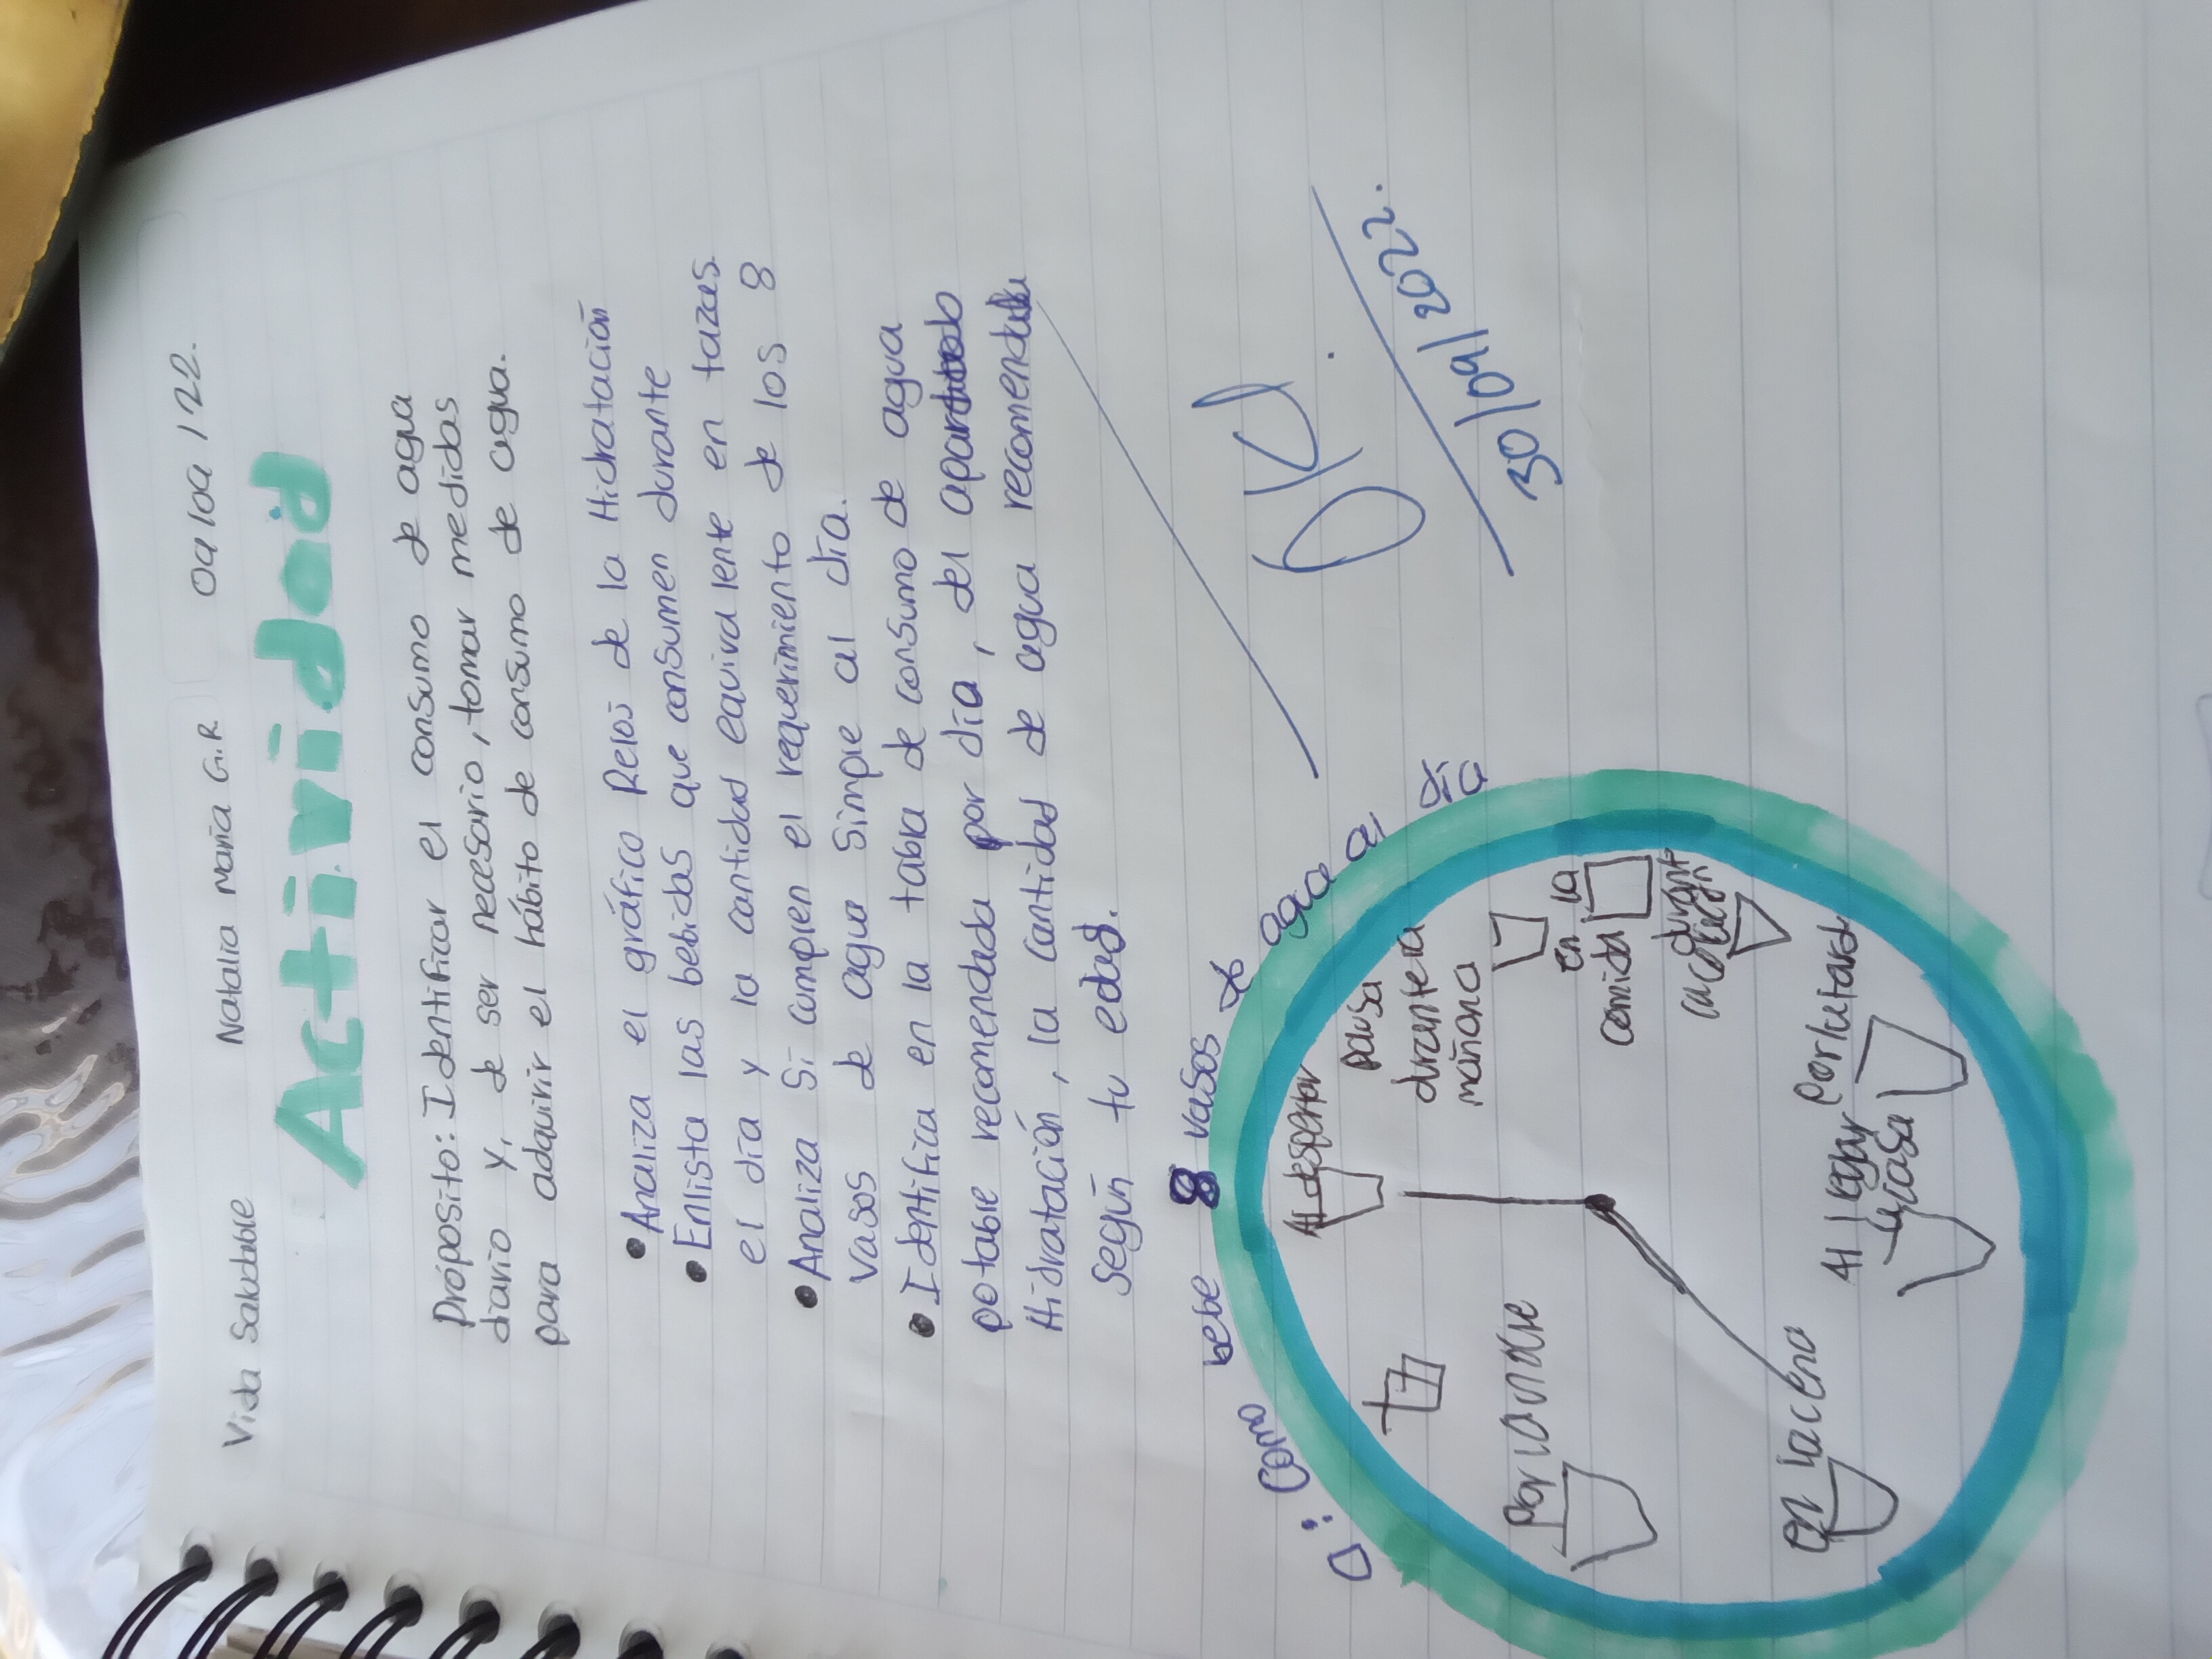 Vida Saludable Natalia María G.R 09/09/22.
Actividad
Própósito: Identificar el consumo de agua
diario y, de ser necesario, tomar medidas
para adquirir el hábito de consumo de agua.
• Analiza el gráfico Reloj de la Hidratación
• Enlista las bebidas que consumen durante
el día y la cantidad equivalente en tazas.
• Analiza Si cumplen el requerimiento de los 8
vasos de agua Simple al día.
• Identifica en la tabla de consumo de agua
potable recomendada por día, del apartado
Hidratación, la cantidad de agua recomendada
según tu edad.
OK
30/09/2022.
D: Como bebe 8 vasos de agua al día
Al despertar
pausa
durante la
mañana
en la
comida
durante
Por la tarde
Al llegar
a casa
en la cena
Por la noche